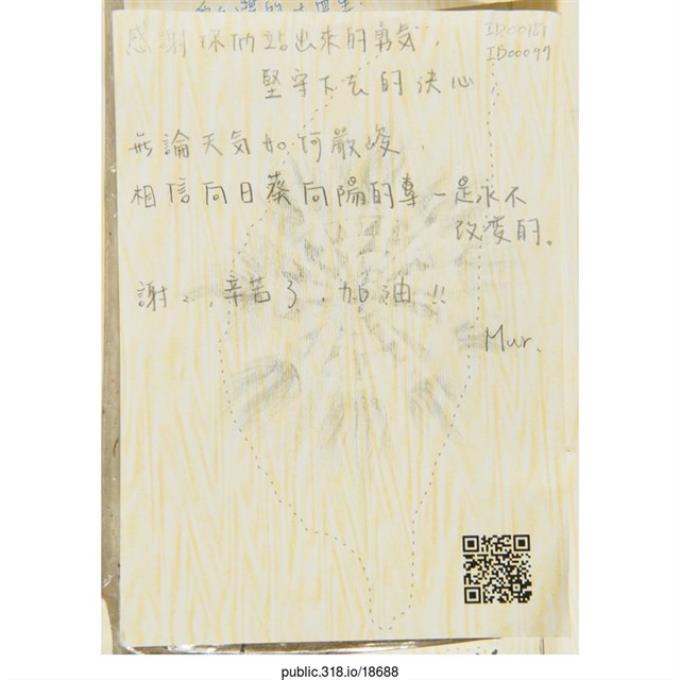 感謝你們站出來的勇氣,
堅守下去的決心
無論天気如何嚴峻,
相信向日葵向陽的專一是永不
改變的。
謝、,辛苦了,加油!!
Mur.
IB00097
public.318.io/18688